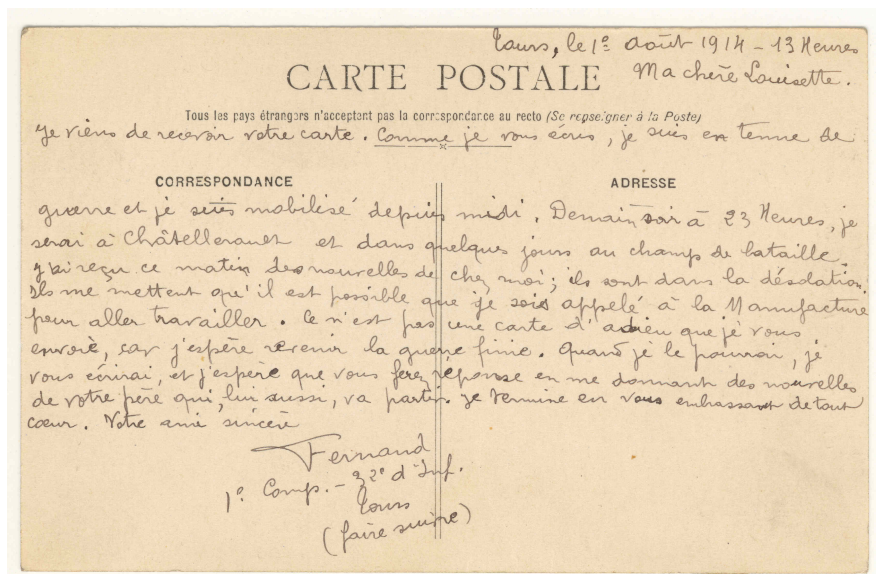 Tours, le 1e août 1914 - 13 Heures
CARTE POSTALE
Ma chère Louisette.
Tous les pays étrangers n'acceptent pas la correspondance au recto (Se renseigner à la Poste)
Je viens de recevoir votre carte. Comme je vous écris, je suis en tenue de
CORRESPONDANCE
ADRESSE
guerre et je suis mobilisé depuis midi. Demain soir à 23 Heures, je
serai à Châtellerault et dans quelques jours au champ de bataille.
J'ai reçu ce matin des nouvelles de chez moi; ils sont dans la désolation.
Ils me mettent qu'il est possible que je sois appelé à la Manufacture
pour aller travailler. Ce n'est pas une carte d'adieu que je vous
envoie, car j'espère revenir la guerre finie. Quand je le pourrai, je
vous écrirai, et j'espère que vous ferez réponse en me donnant des nouvelles
de votre père qui, lui aussi, va partir. Je termine en vous embrassant de tout
cœur. Votre ami sincère
Fernand
1e Comp. - 32e d'Inf.
Tours
(faire suivre)